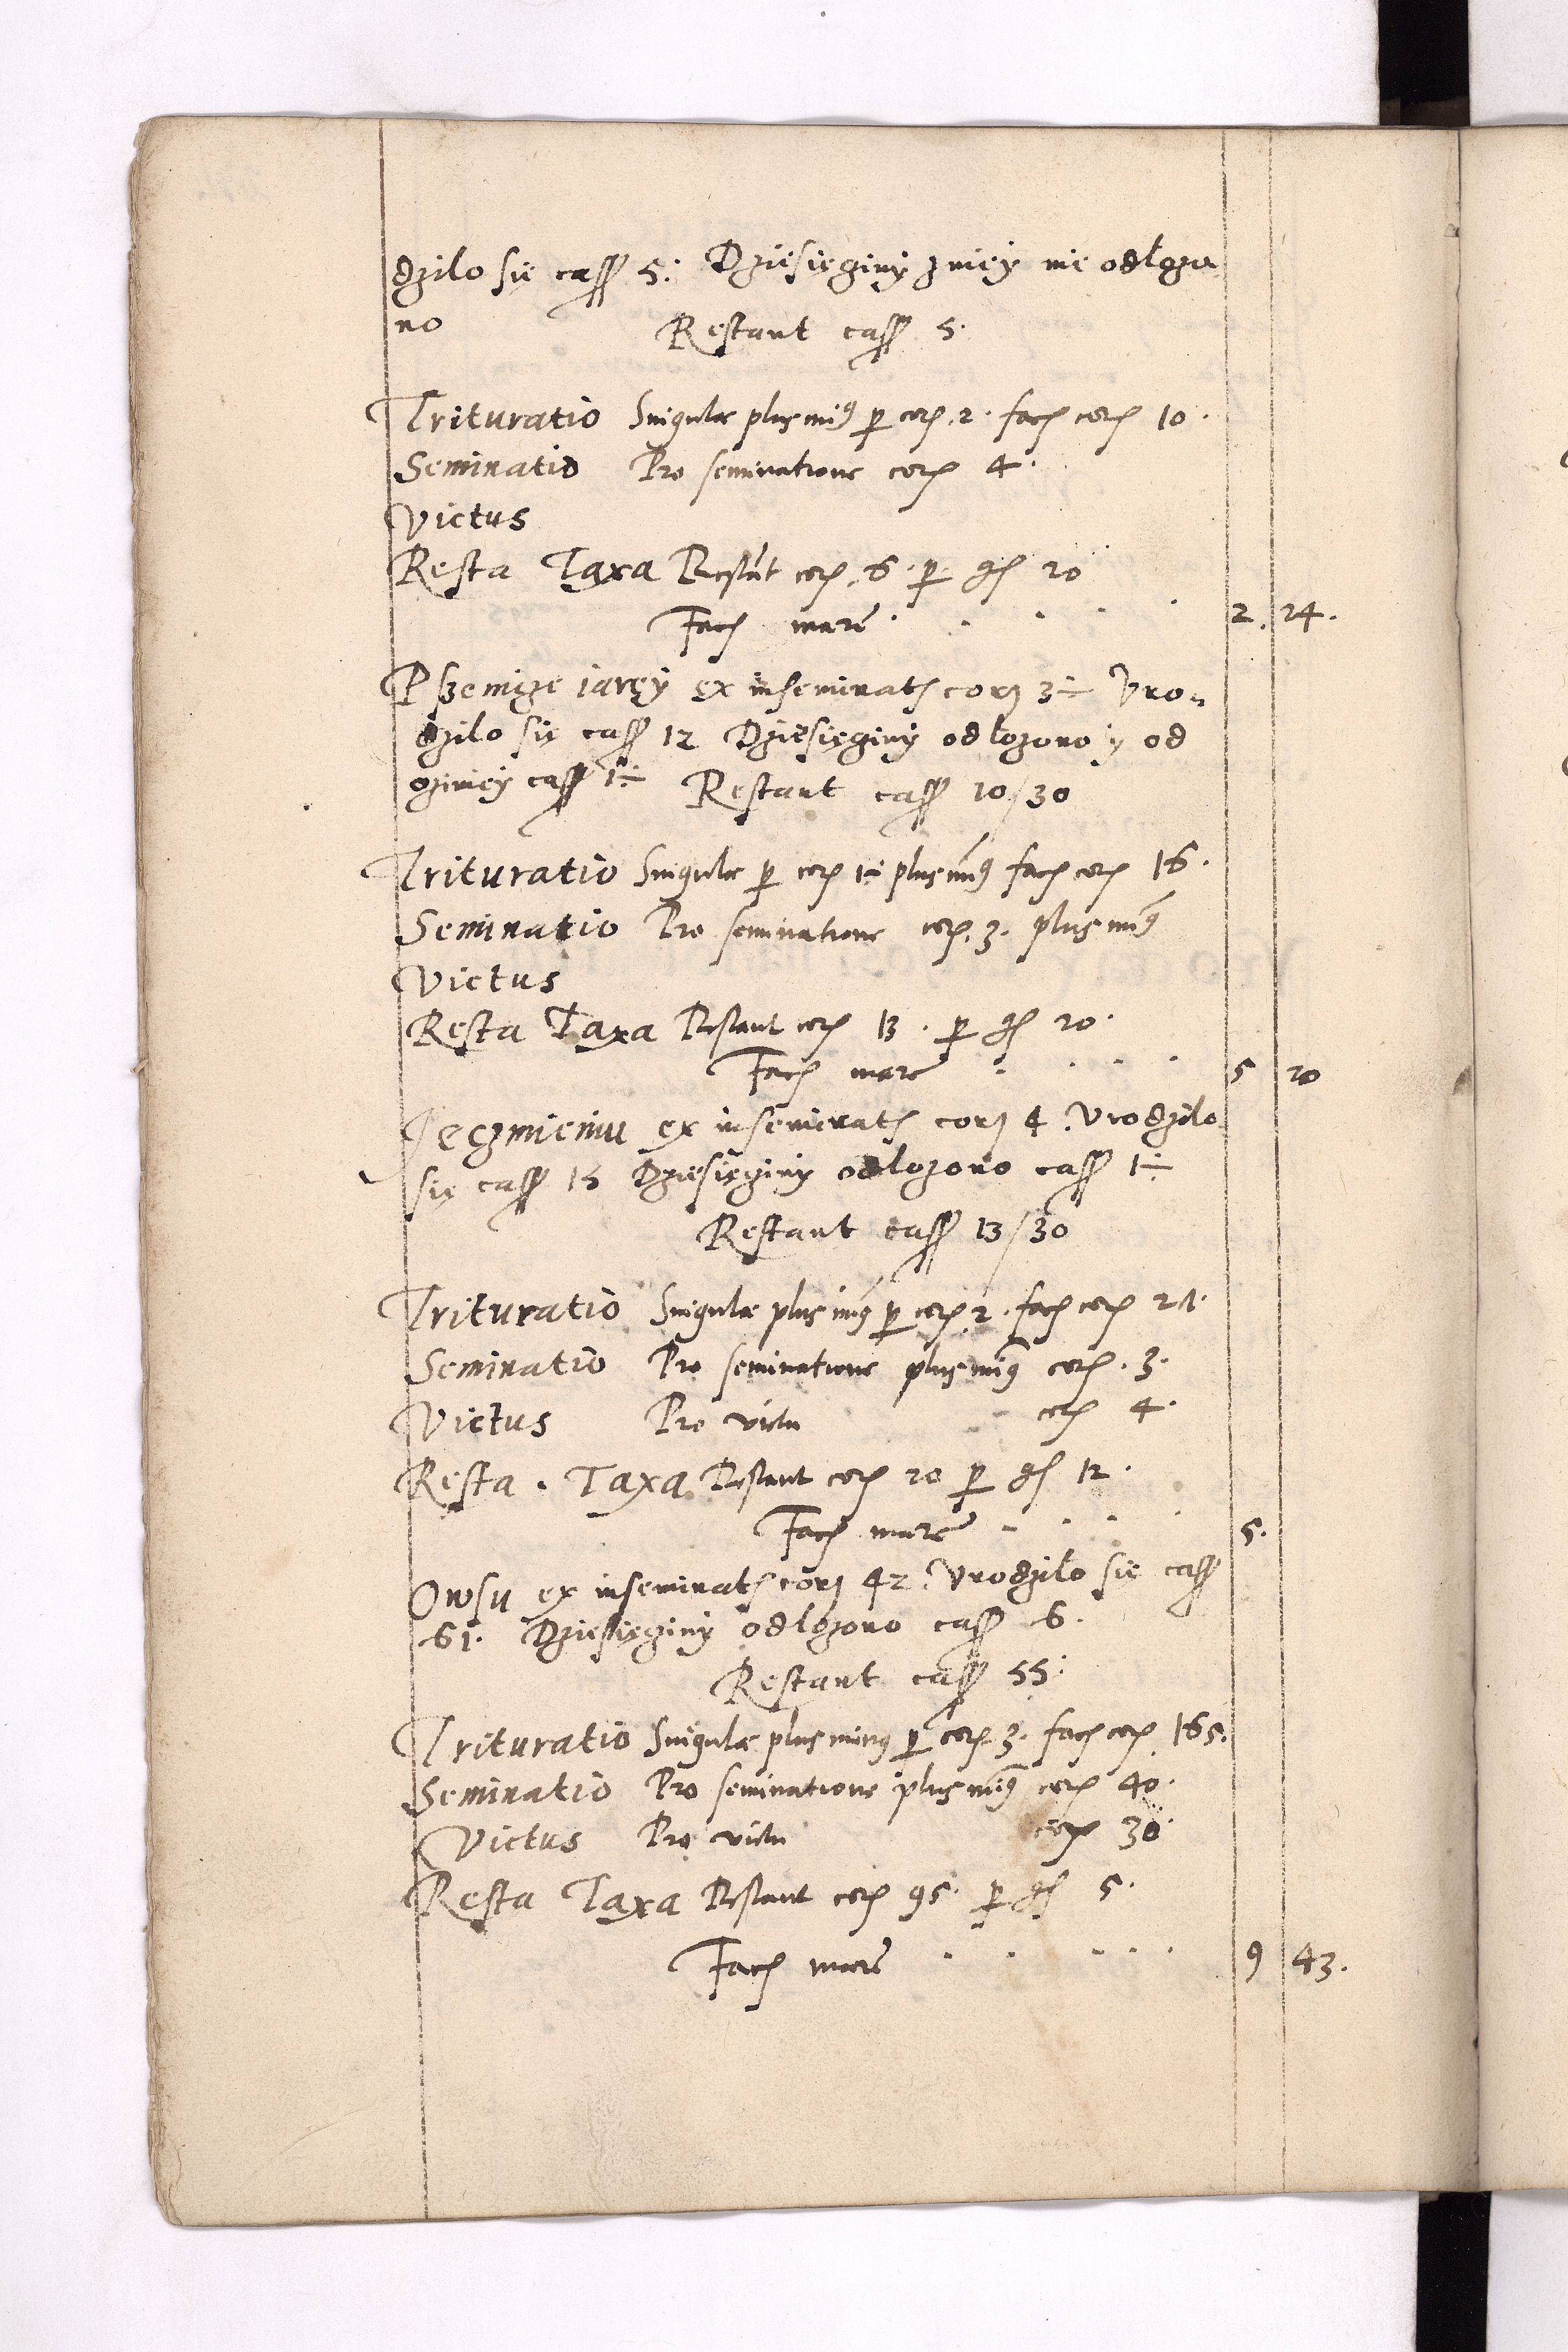 dzilo się cass 5. Dzięsięciny z niey nie odlozo
no Restant cass 5.
Trituratio Singulæ plus min9 p cor 2. fac cor 10.
Seminatio Pro seminatione cor 4.
Victus
Resta Taxa Restāt cor 6. p gs 20
Fac marc 2. 24.
Pszenicze iaręy ex inseminat cor 3÷ Vro„
dzilo się cass 12 Dzięsięciny odlozono y od
oziney cass 1÷ Restant cass 10/30
Trituratio Singulæ p cor 1÷ plus min9 fac cor 16.
Seminatio Pro seminatione cor 3. plus min9
Victus
Resta Taxa Restant cor 13. p gs 20.
Fac marc 5 20
Jęczmieniu ex inseminat cor 4. Vrodzilo
się cass 15 Dzięsięciny odlozono cass 1÷
Restant cass 13/30
Trituratio Singulæ plus min9 p cor 2. fac cor 27.
Seminatio Pro seminatione plus min9 cor 3.
Victus Pro victu cor 4.
Resta. Taxa Restant cor 20 p gs 12.
Fac marc 5.
Owsu ex inseminat cor 42. Vrodzilo się cass
61. Dzięsięciny odlozono cass 6.
Restant cass 55.
Trituratio Singulæ plus minus p cor 3. fac cor 165.
Seminatio Pro seminatione plus min9 cor 40.
Victus Pro victu cor 30
Resta Taxa Restant cor 95. p gs 5.
Fac marc 9 43.